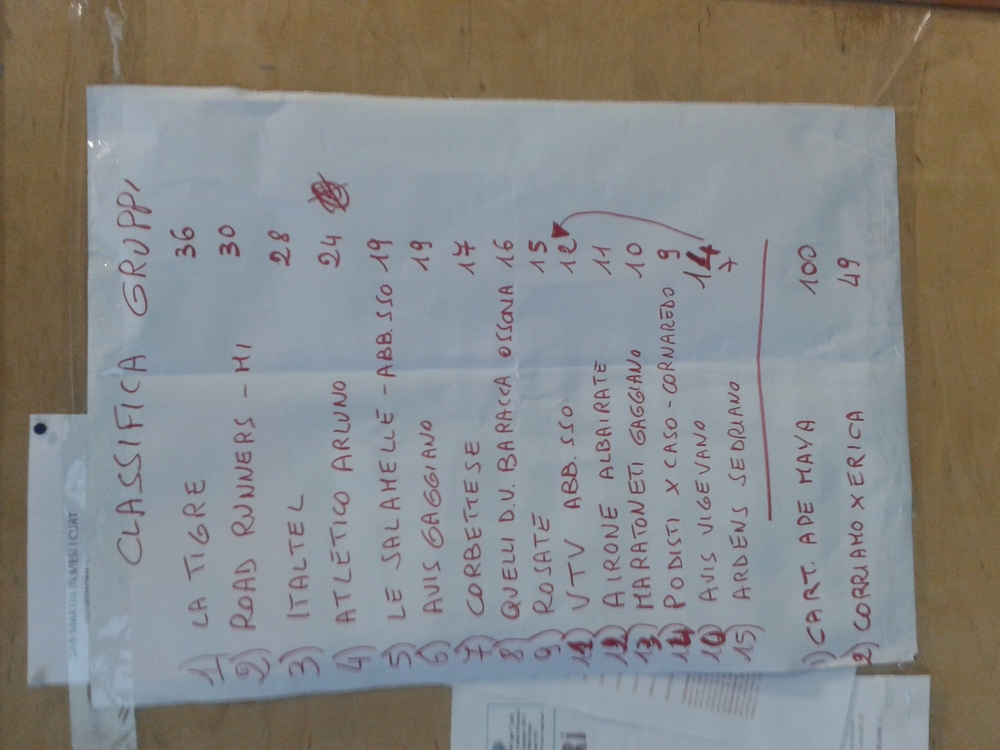 SAN MARTIN IN MESI I CURT
CLASSIFICA GRUPPI
1) LA TIGRE 36
2) ROAD RUNNERS - MI 30
3) ITALTEL 28
4) ATLETICO ARLUNO 24
5) LE SALAMELLE - ABB.SSO 19
6) AVIS GAGGIANO 19
7) CORBETTESE 17
8) QUELLI D.V. BARACCA OSSONA 16
9) ROSATE 15
11) VTV ABB. SSO 12
12) AIRONE ALBAIRATE 11
13) MARATONETI GAGGIANO 10
14) PODISTI X CASO - CORNAREDO 9
10) AVIS VIGEVANO 14
15) ARDENS SEDRIANO 7
1) CART. APE MAYA 100
2) CORRIAMO X ERICA 49